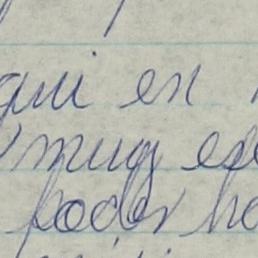 qui en
muy es
poder ha